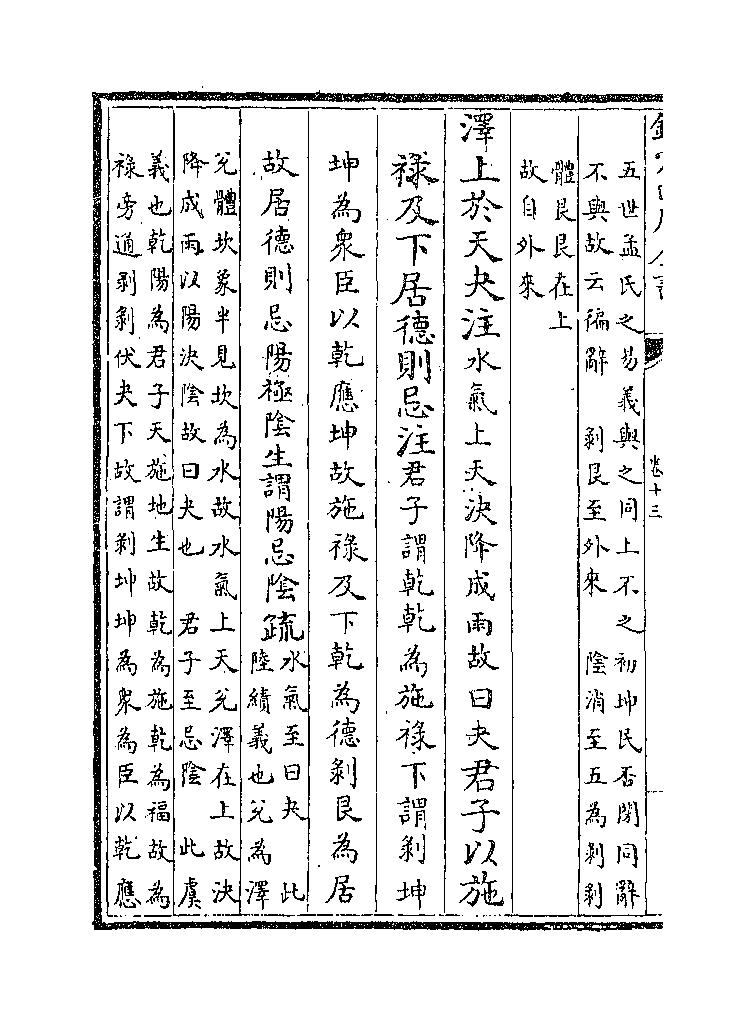 卷十三
五世孟氏之易義與之同上不之初坤民否閉同辭
不與故云徧辭　剥艮至外來　陰消至五為剥剥
體艮艮在上
故自外來
澤上於天夬注水氣上天決降成雨故曰夬君子以施
祿及下居德則忌注君子謂乾乾為施祿下謂剥坤
坤為衆臣以乾應坤故施祿及下乾為德剥艮為居
故居德則忌陽極陰生謂陽忌陰疏
水氣至曰夬　此
陸績義也兊為澤
兊體坎象半見坎為水故水氣上天兊澤在上故決
降成雨以陽決陰故曰夬也　君子至忌陰　此虞
義也乾陽為君子天施地生故乾為施乾為福故為
祿旁通剥剥伏夬下故謂剥坤坤為衆為臣以乾應